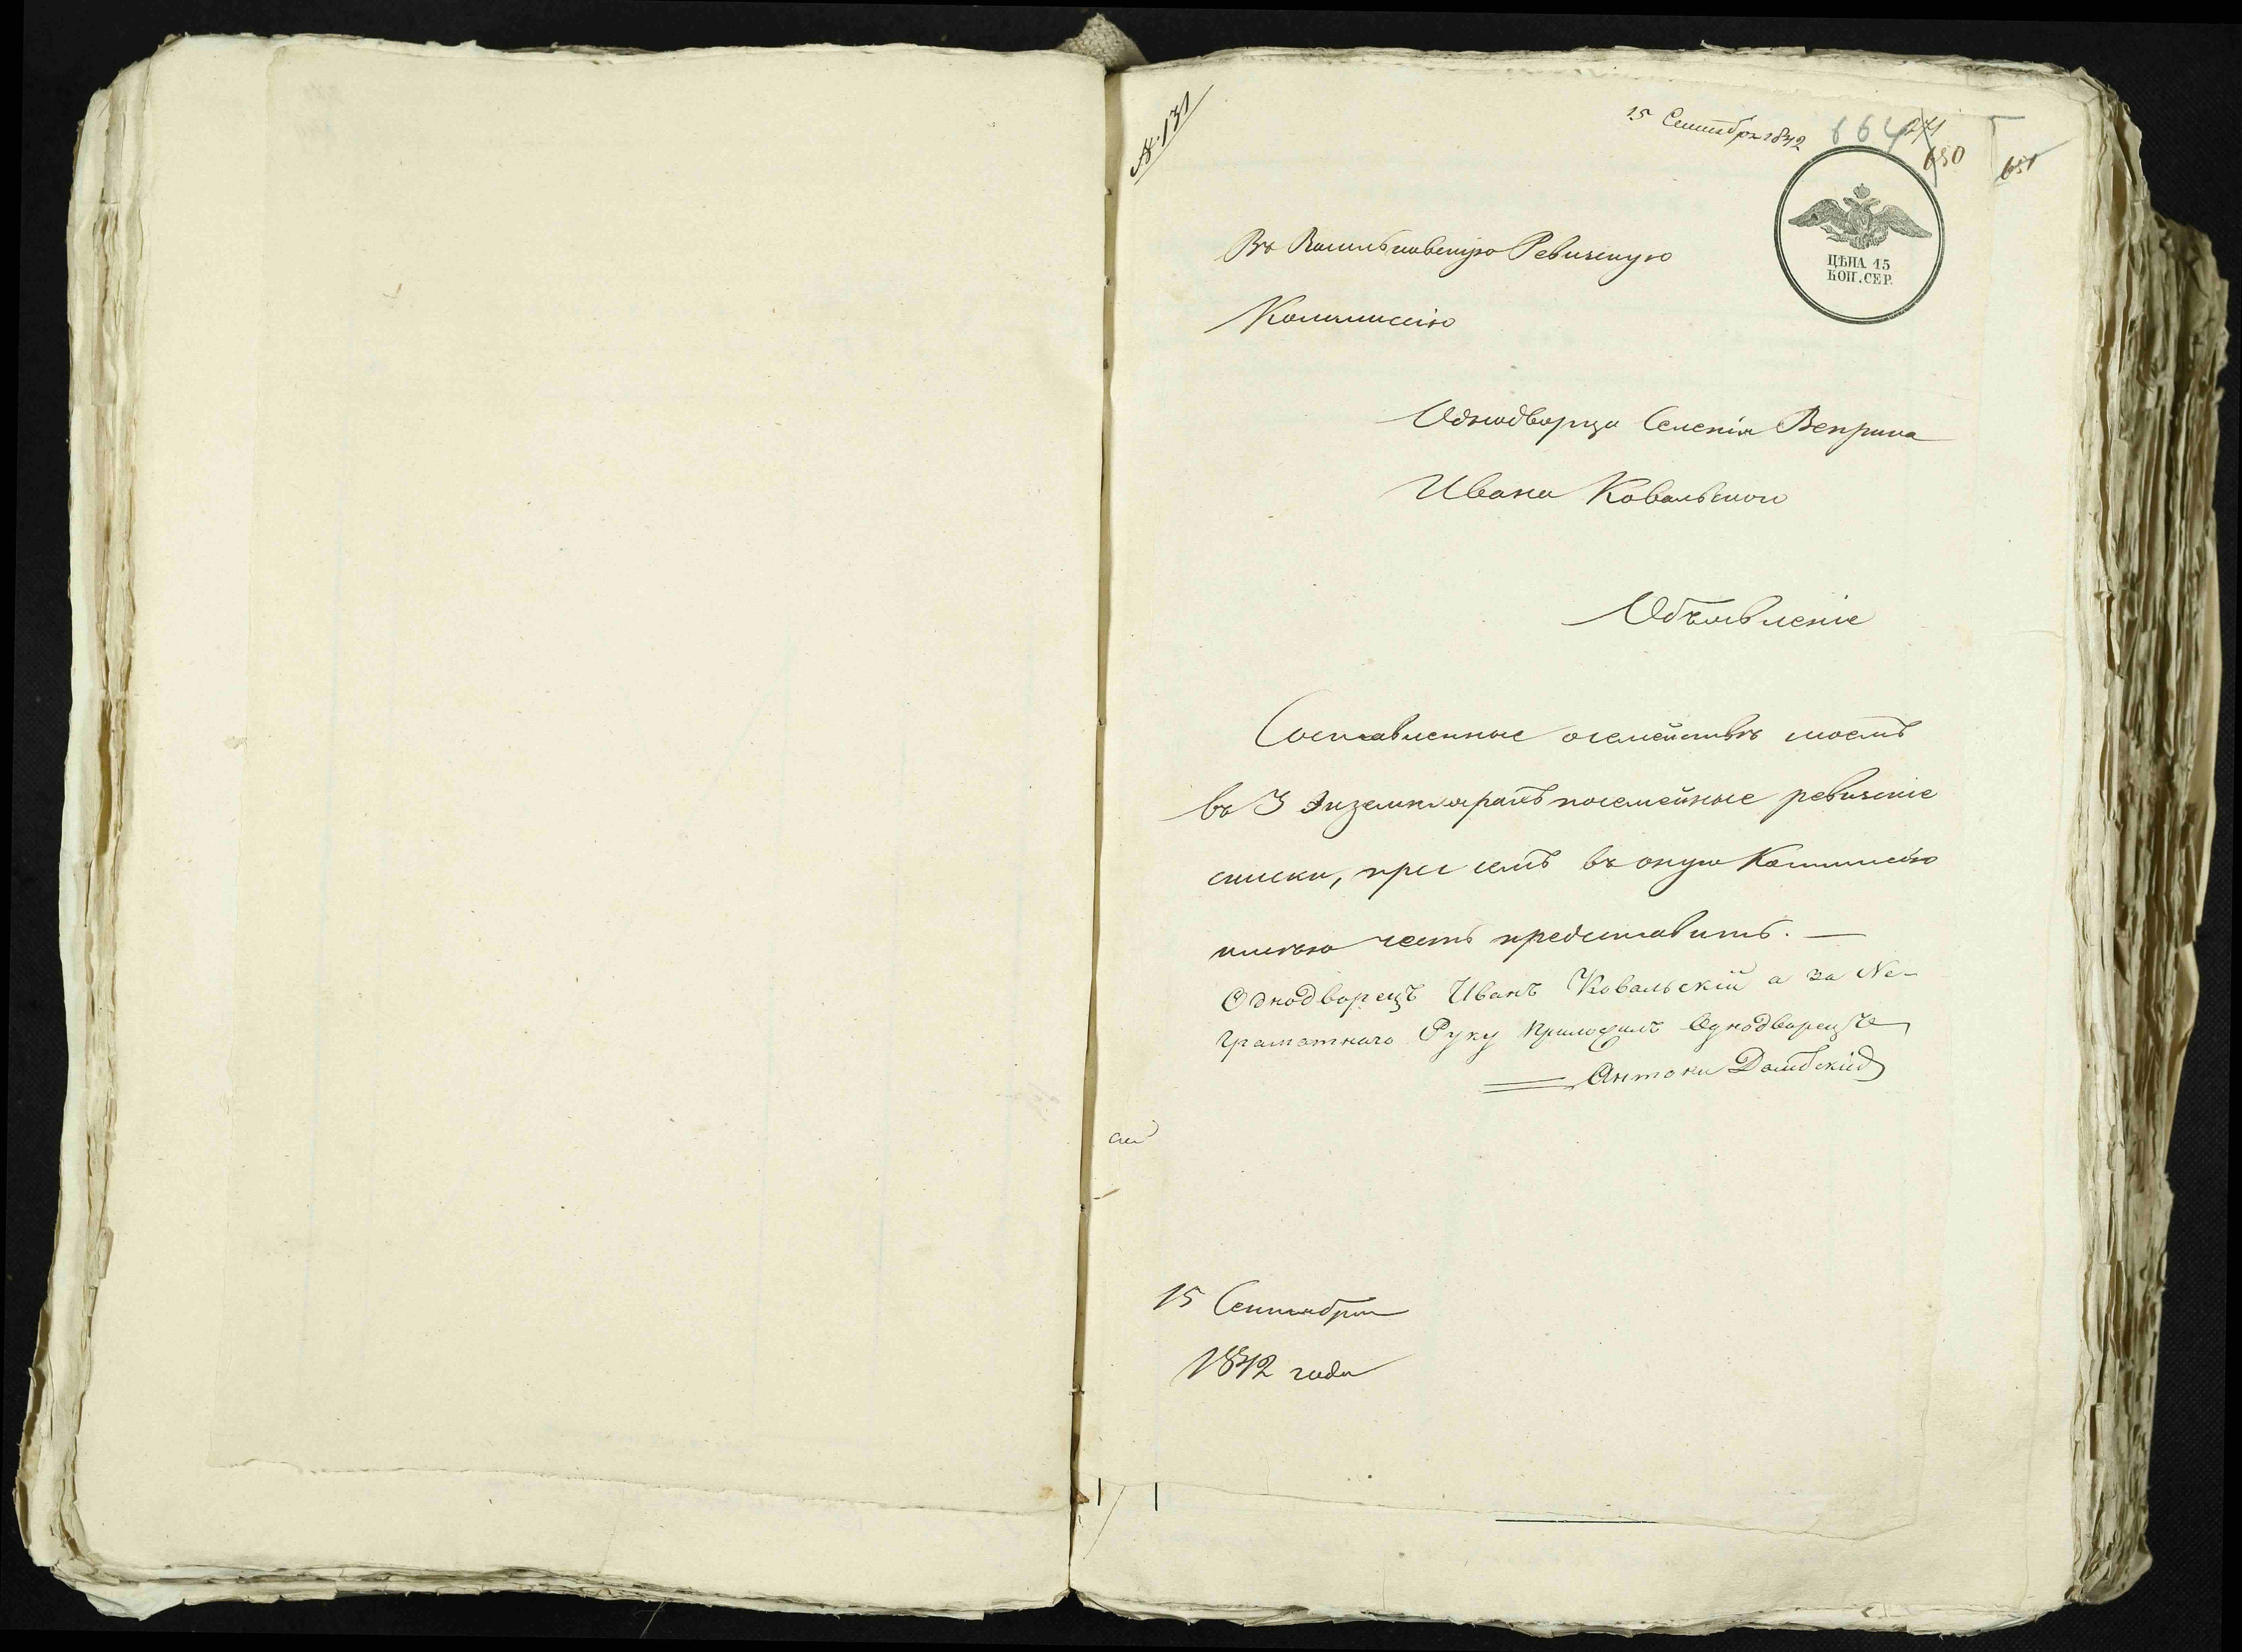 № 131
15 Сентября 1842
664
650
651
ЦѢНА 15
КОП. СЕР.
Въ Васильковскую Ревизскую
Коммиссію
Однодворца Селенія Веприка
Ивана Ковальского
Объявленіе
Составленные осемействѣ моемъ
въ 3 Экземплярахъ посемейные ревизскіе
списки, при семъ въ оную Коммисію
имѣю честь представить. —
Однодворецъ Иванъ Ковальскій а за Не-
грамотнаго Руку Приложилъ Однодворецъ
Антони Домбскій
15 Сентября
1842 года